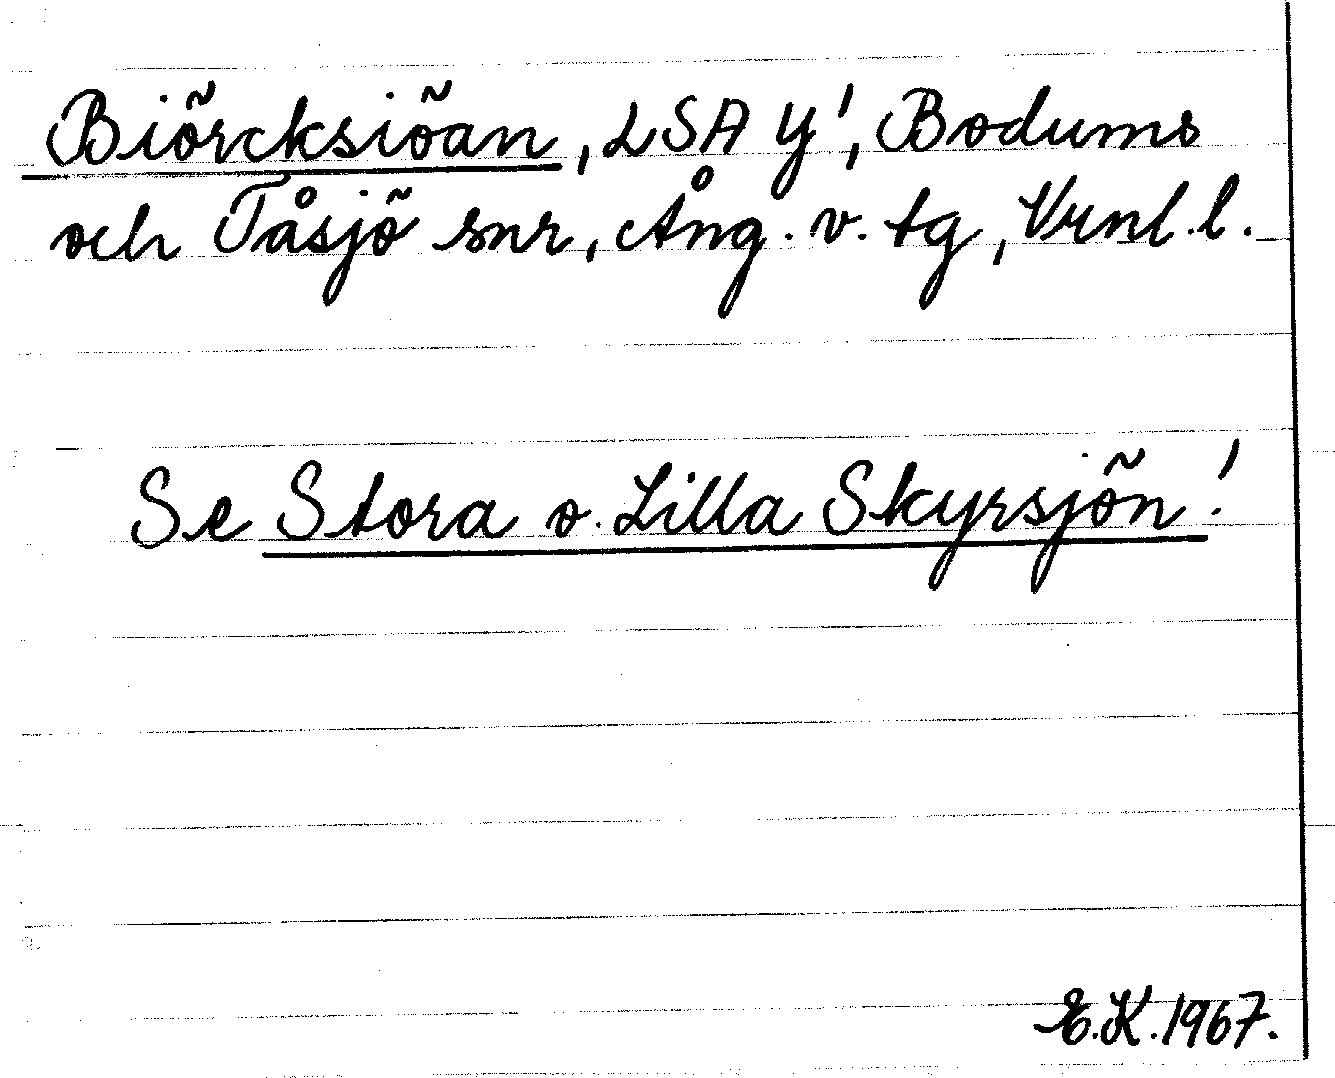 Biörcksiöan, LSA Y', Bodums
och Tåsjö snr, Ång. v. tg, Vrnl. l.
Se Stora o. Lilla Skyrsjön!
E.K. 1967.